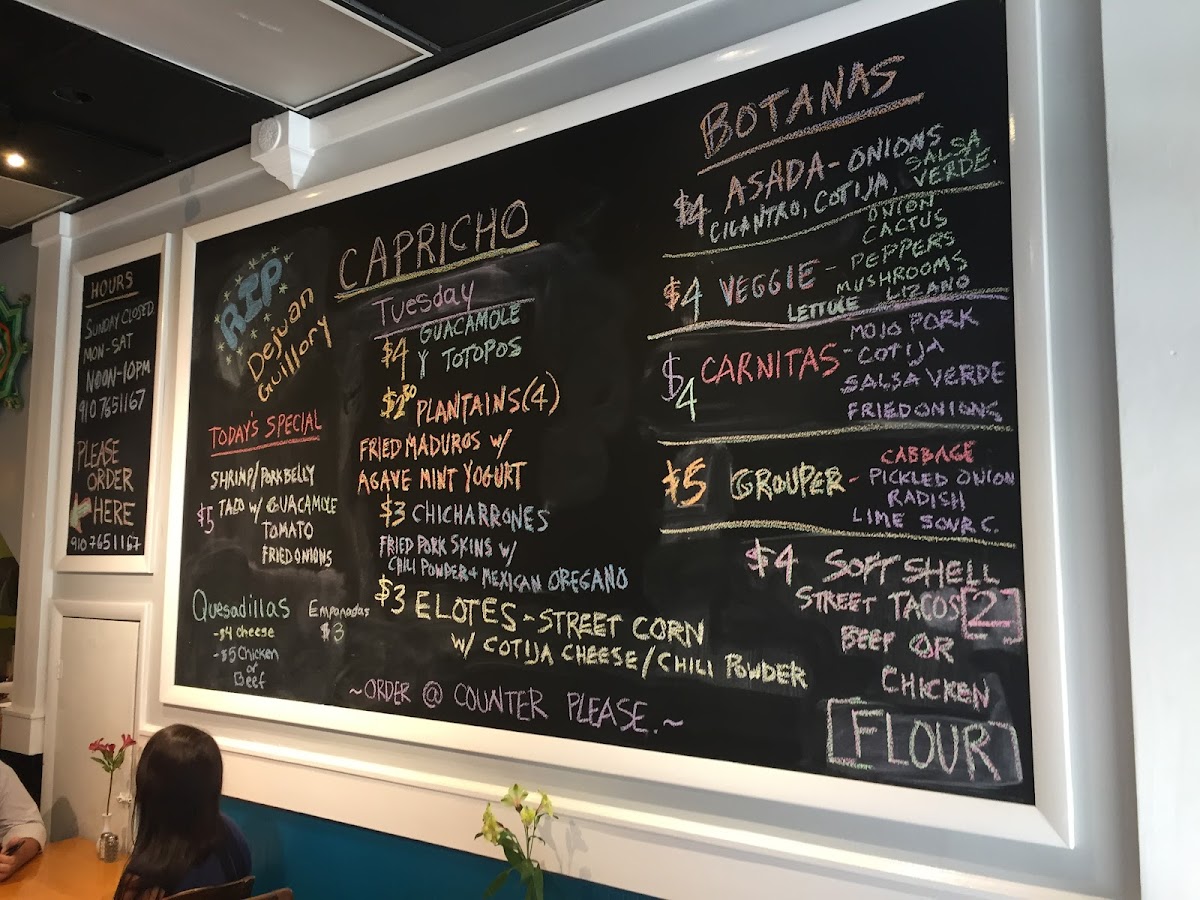 HOURS
SUNDAY CLOSED
MON-SAT
NOON-10PM
910 7651167
PLEASE
ORDER
HERE
910 7651167
RIP
Dejuan
Guillory
TODAY'S SPECIAL
SHRIMP/PORKBELLY
$5 TACO W/ GUACAMOLE
TOMATO
FRIED ONIONS
Quesadillas
-$4 cheese
-$5 Chicken
or
Beef
Empanadas
$3
CAPRICHO
Tuesday
$4 GUACAMOLE
Y TOTOPOS
$2.50 PLANTAINS(4)
FRIED MADUROS W/
AGAVE MINT YOGURT
$3 CHICHARRONES
FRIED PORK SKINS W/
CHILI POWDER + MEXICAN OREGANO
$3 ELOTES - STREET CORN
W/ COTIJA CHEESE/CHILI POWDER
~ORDER @ COUNTER PLEASE.~
BOTANAS
$4 ASADA - ONIONS
CILANTRO, COTIJA, SALSA
VERDE.
$4 VEGGIE - ONION
CACTUS
PEPPERS
MUSHROOMS
LETTUCE LIZANO
$4 CARNITAS - MOJO PORK
COTIJA
SALSA VERDE
FRIED ONIONS
$5 GROUPER - CABBAGE
PICKLED ONION
RADISH
LIME SOUR C.
$4 SOFT SHELL
STREET TACOS 2
BEEF OR
CHICKEN
FLOUR